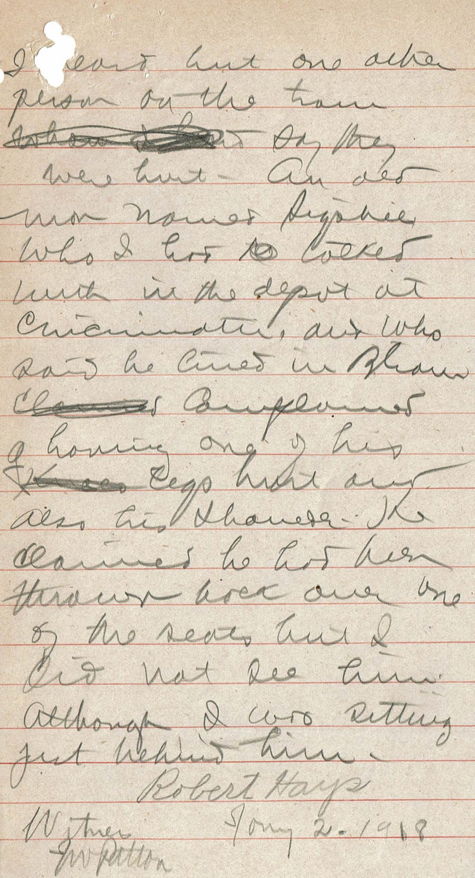 I heard but one other
person on the train
say they
were hurt - An old
man named
who I had talked
with in the depot at
Cincinnatti, and who
said he lived in Bham
Complained
of having one of his
legs hurt and
also his shoulder. He
claimed he had been
thrown back over one
of the seats but I
did not see him
although I was sitting
just behind him -
Robert Hays
Witness Jany 2. 1918
Patton